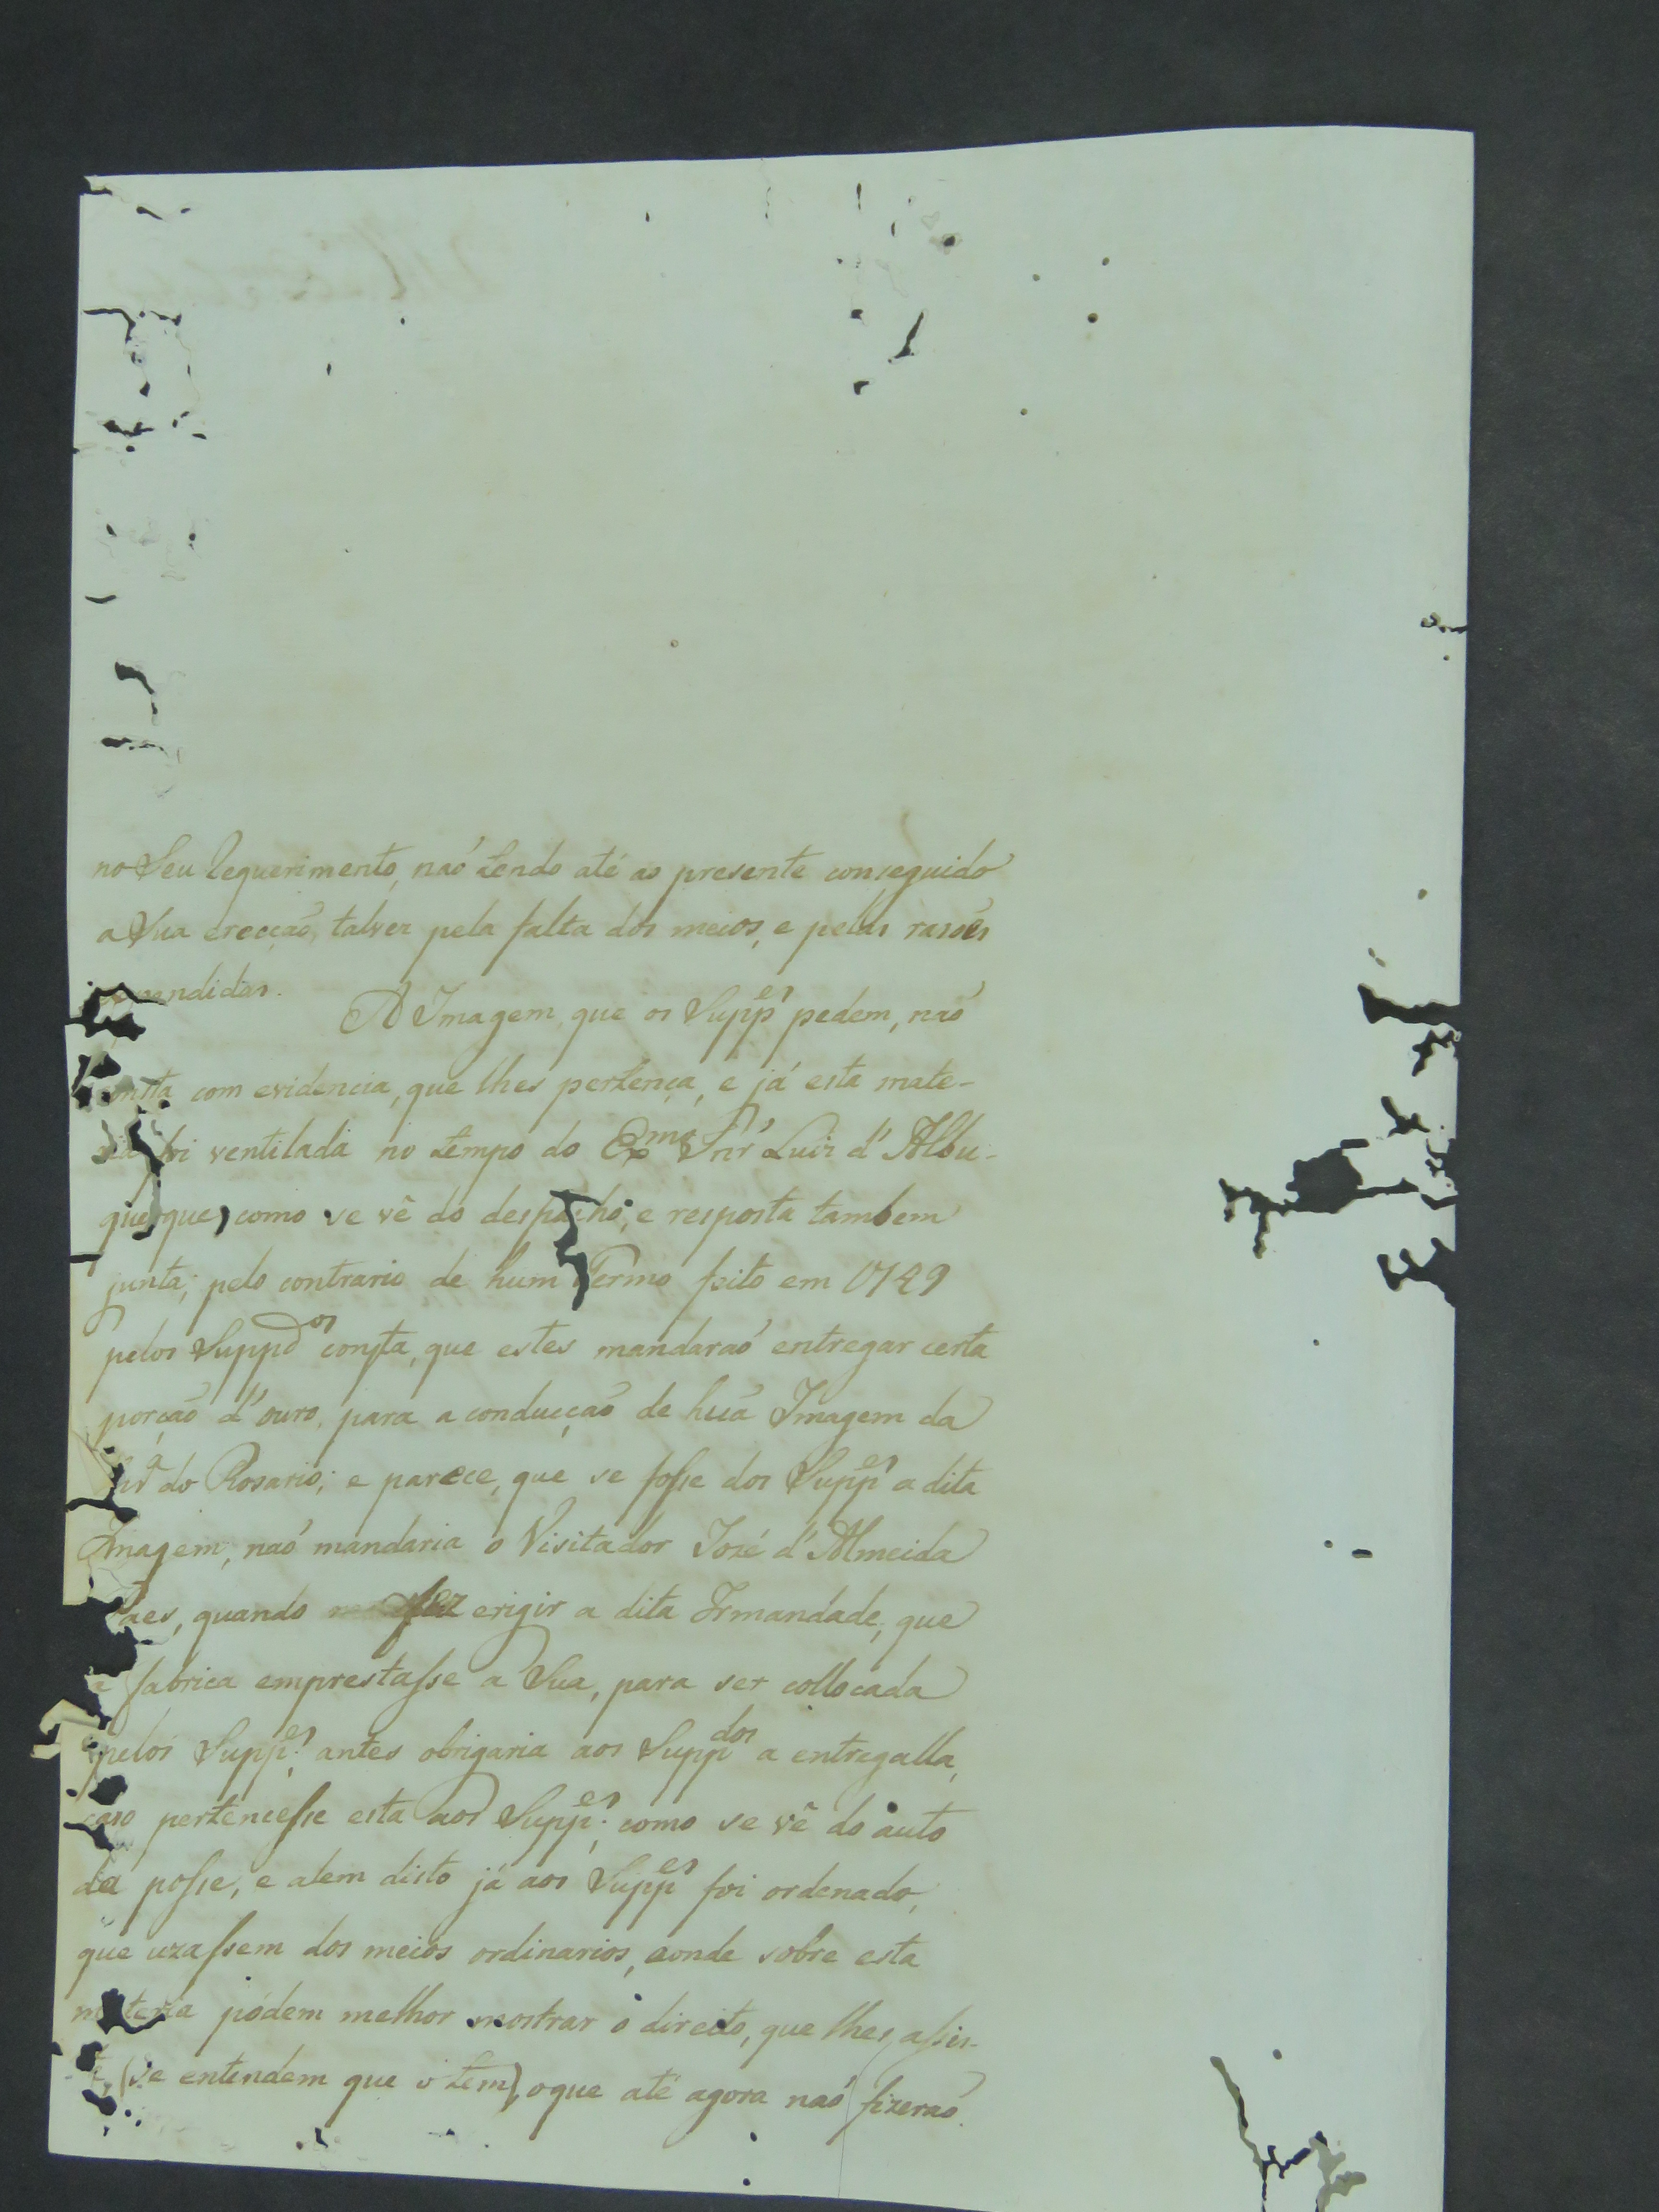 no Seu Requerimento, naõ tendo até ao presente conseguido
a Sua erecçaõ, talvez pela falta dos meios, e pelas rasoẽs
pendidas.
A Imagem que os Supp.es pedem, naõ
consta com evidencia, que lhes pertença, e já esta mate-
ria foi ventilada no tempo do Ex.mo Snr' Luiz d'Albu-
querque, como se vê do despacho, e resposta tambem
junta; pelo contrario de hum Termo feito em 1749
pelos Supp.dos consta, que estes mandaraõ entregar certa
porçaõ d'ouro, para a conducçaõ de huã Imagem da
Snr.a do Rosario; e parece, que se fosse dos Supp.es a dita
Imagem, naõ mandaria o Visitador José d'Almeida
quando fez erigir a dita Irmandade, que
a fabrica emprestasse a Sua, para ser collocada
pelos Supp.es; antes obrigaria aos Supp.dos a entregalla,
caso pertencesse esta aos Supp.es; como se vê do auto
da posse, e alem disto já aos Supp.es foi ordenado,
que uzassem dos meios ordinarios, aonde sobre esta
materia pódem melhor mostrar o direito, que lhes assis-
te, (se entendem que o tem), o que até agora naõ fizeraõ.